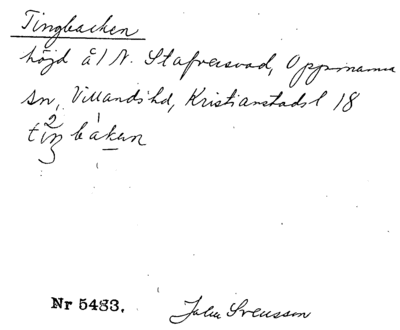 Tingbacken
höjd å/ N. Stafversvad, Oppmanna
sn, Villands hd, Kristianstads l 18
tiŋbakən
Nr 5483. John Svensson